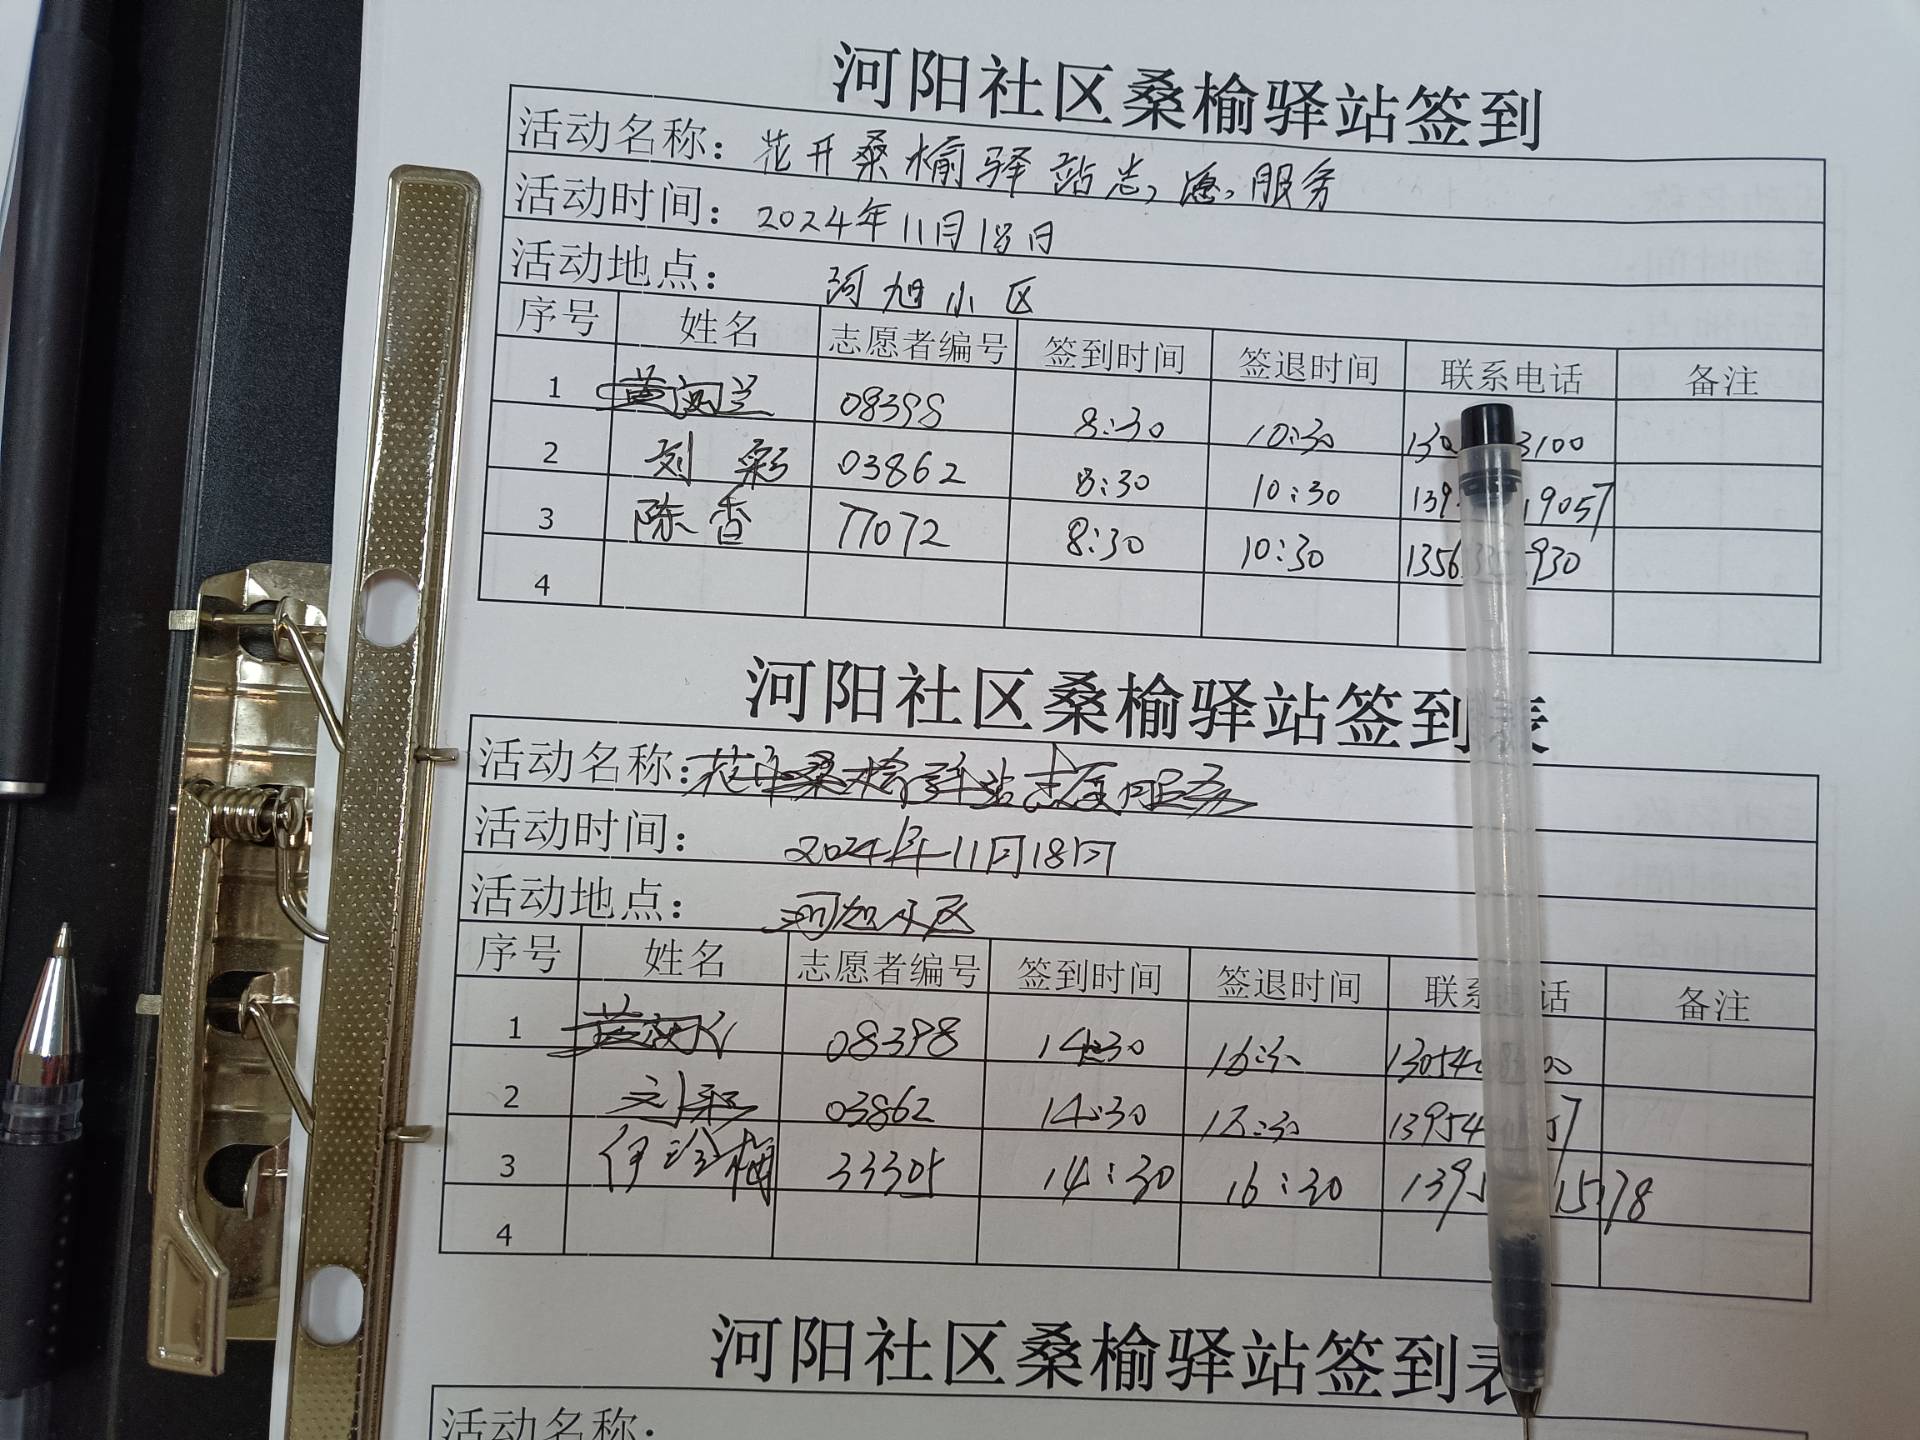 河阳社区桑榆驿站签到
活动名称：花开桑榆驿站志愿服务
活动时间：2024年11月18日
活动地点：河旭小区
序号 姓名 志愿者编号 签到时间 签退时间 联系电话 备注
1 08398 8:30 10:30 3100
2 刘彩 03862 8:30 10:30 19057
3 陈香 77072 8:30 10:30 1356 930
4
河阳社区桑榆驿站签到表
活动名称：花开桑榆驿站志愿服务
活动时间：2024年11月18日
活动地点：河旭小区
序号 姓名 志愿者编号 签到时间 签退时间 联系电话 备注
1 08398 14:30 16:30 13054
2 刘彩 03862 14:30 16:30 13954 57
3 伊珍梅 33305 14:30 16:30 1395 15178
4
河阳社区桑榆驿站签到表
活动名称：